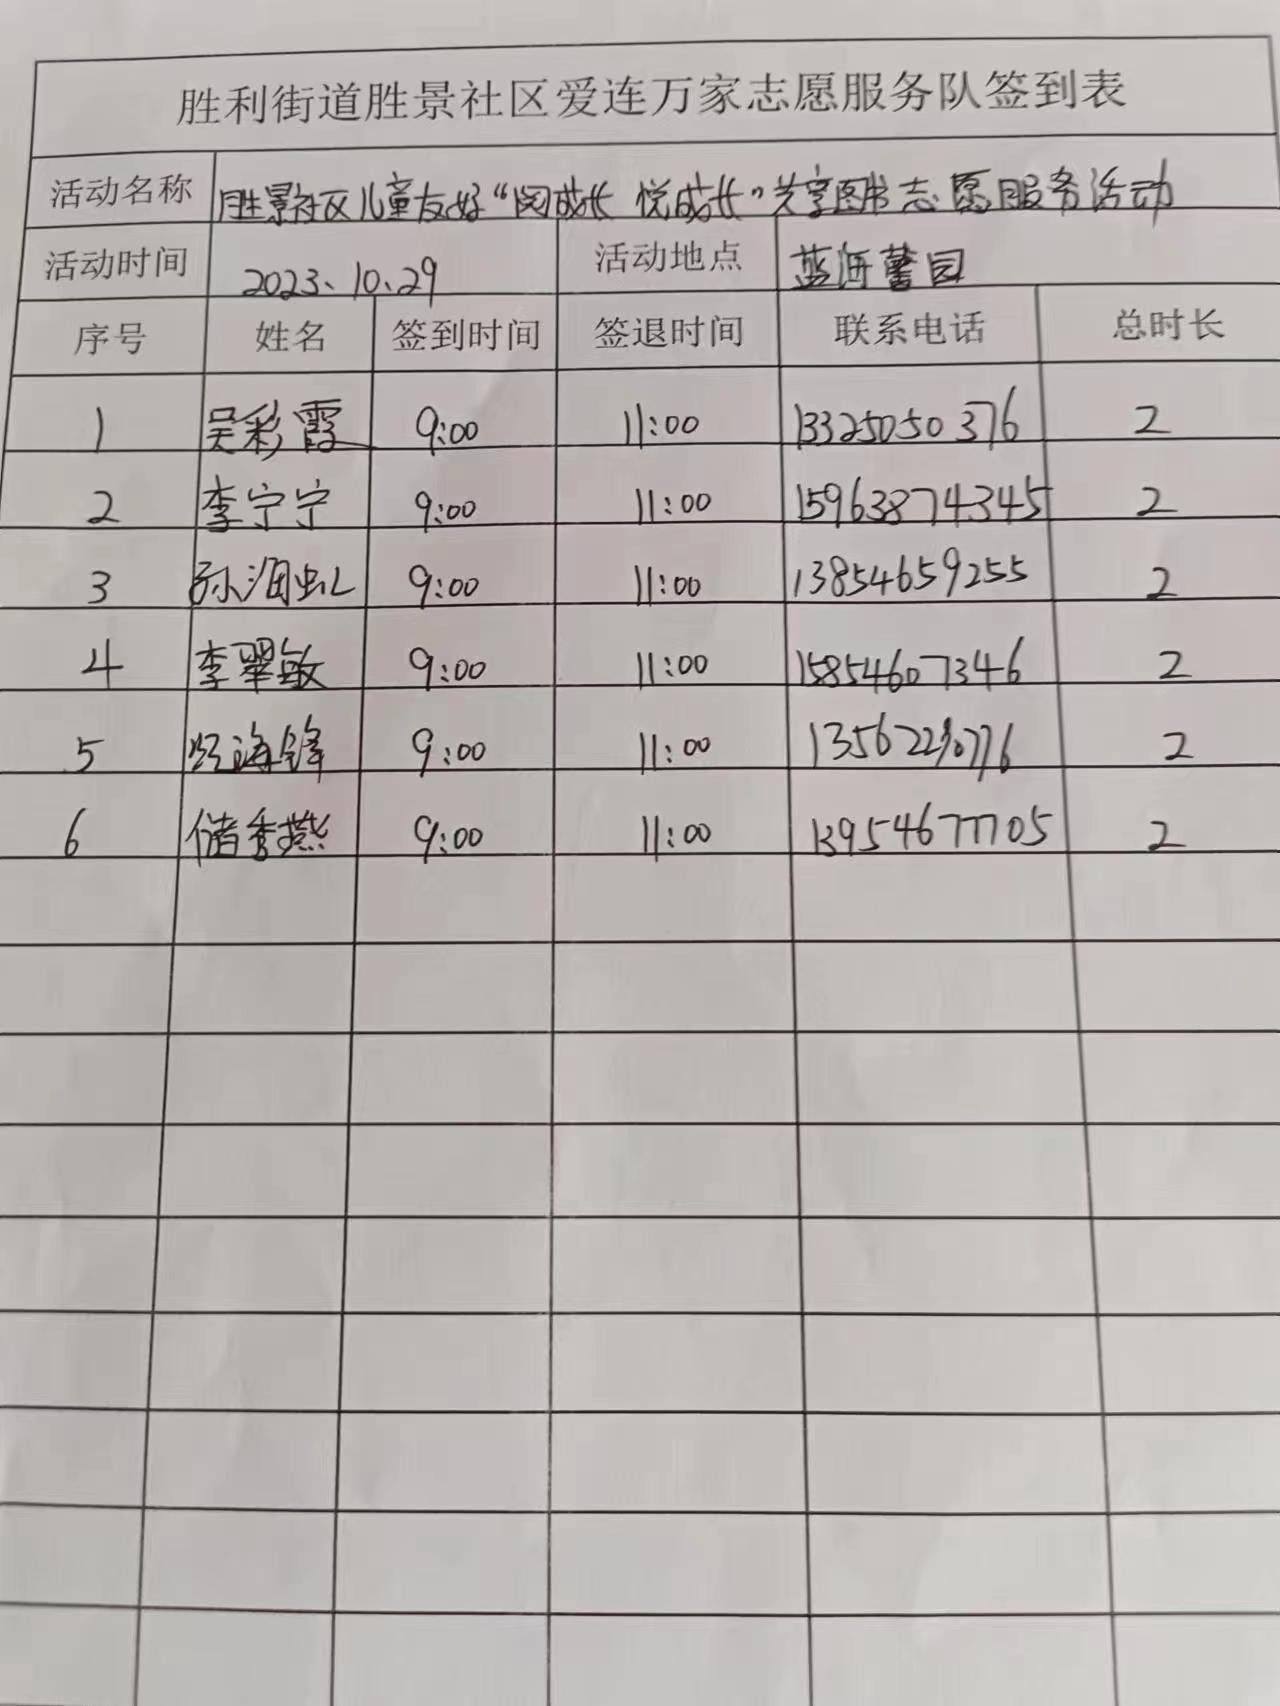 胜利街道胜景社区爱连万家志愿服务队签到表
活动名称 胜景社区儿童友好“阅成长 悦成长”共享图书志愿服务活动
活动时间 2023.10.29 活动地点 蓝海馨园
序号 姓名 签到时间 签退时间 联系电话 总时长
1 吴彩霞 9:00 11:00 13325050376 2
2 李宁宁 9:00 11:00 15963874345 2
3 孙海虹 9:00 11:00 13854659255 2
4 李翠敏 9:00 11:00 15854607346 2
5 海锋 9:00 11:00 2
6 储秀燕 9:00 11:00 13954677705 2